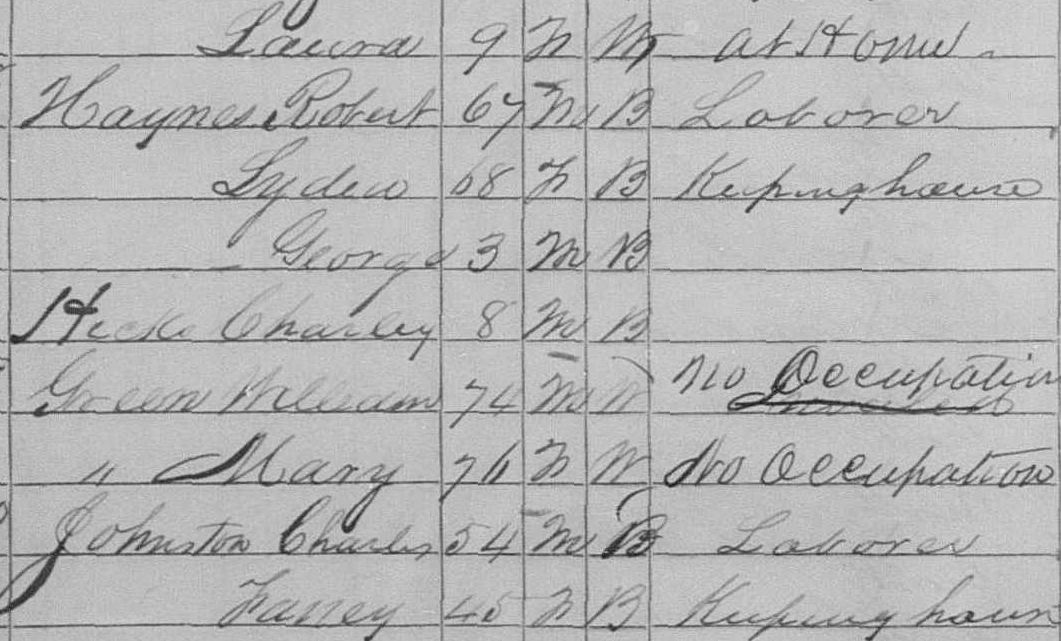 Laura 9 F W at Home
Haynes Robert 67 M B Laborer
Lydia 68 F B Keeping house
George 3 M B
Hicks Charley 8 M B
Green William 74 M W No Occupation
" Mary 76 F W No Occupation
Johnston Charles 54 M B Laborer
Fanney 45 F B Keeping house